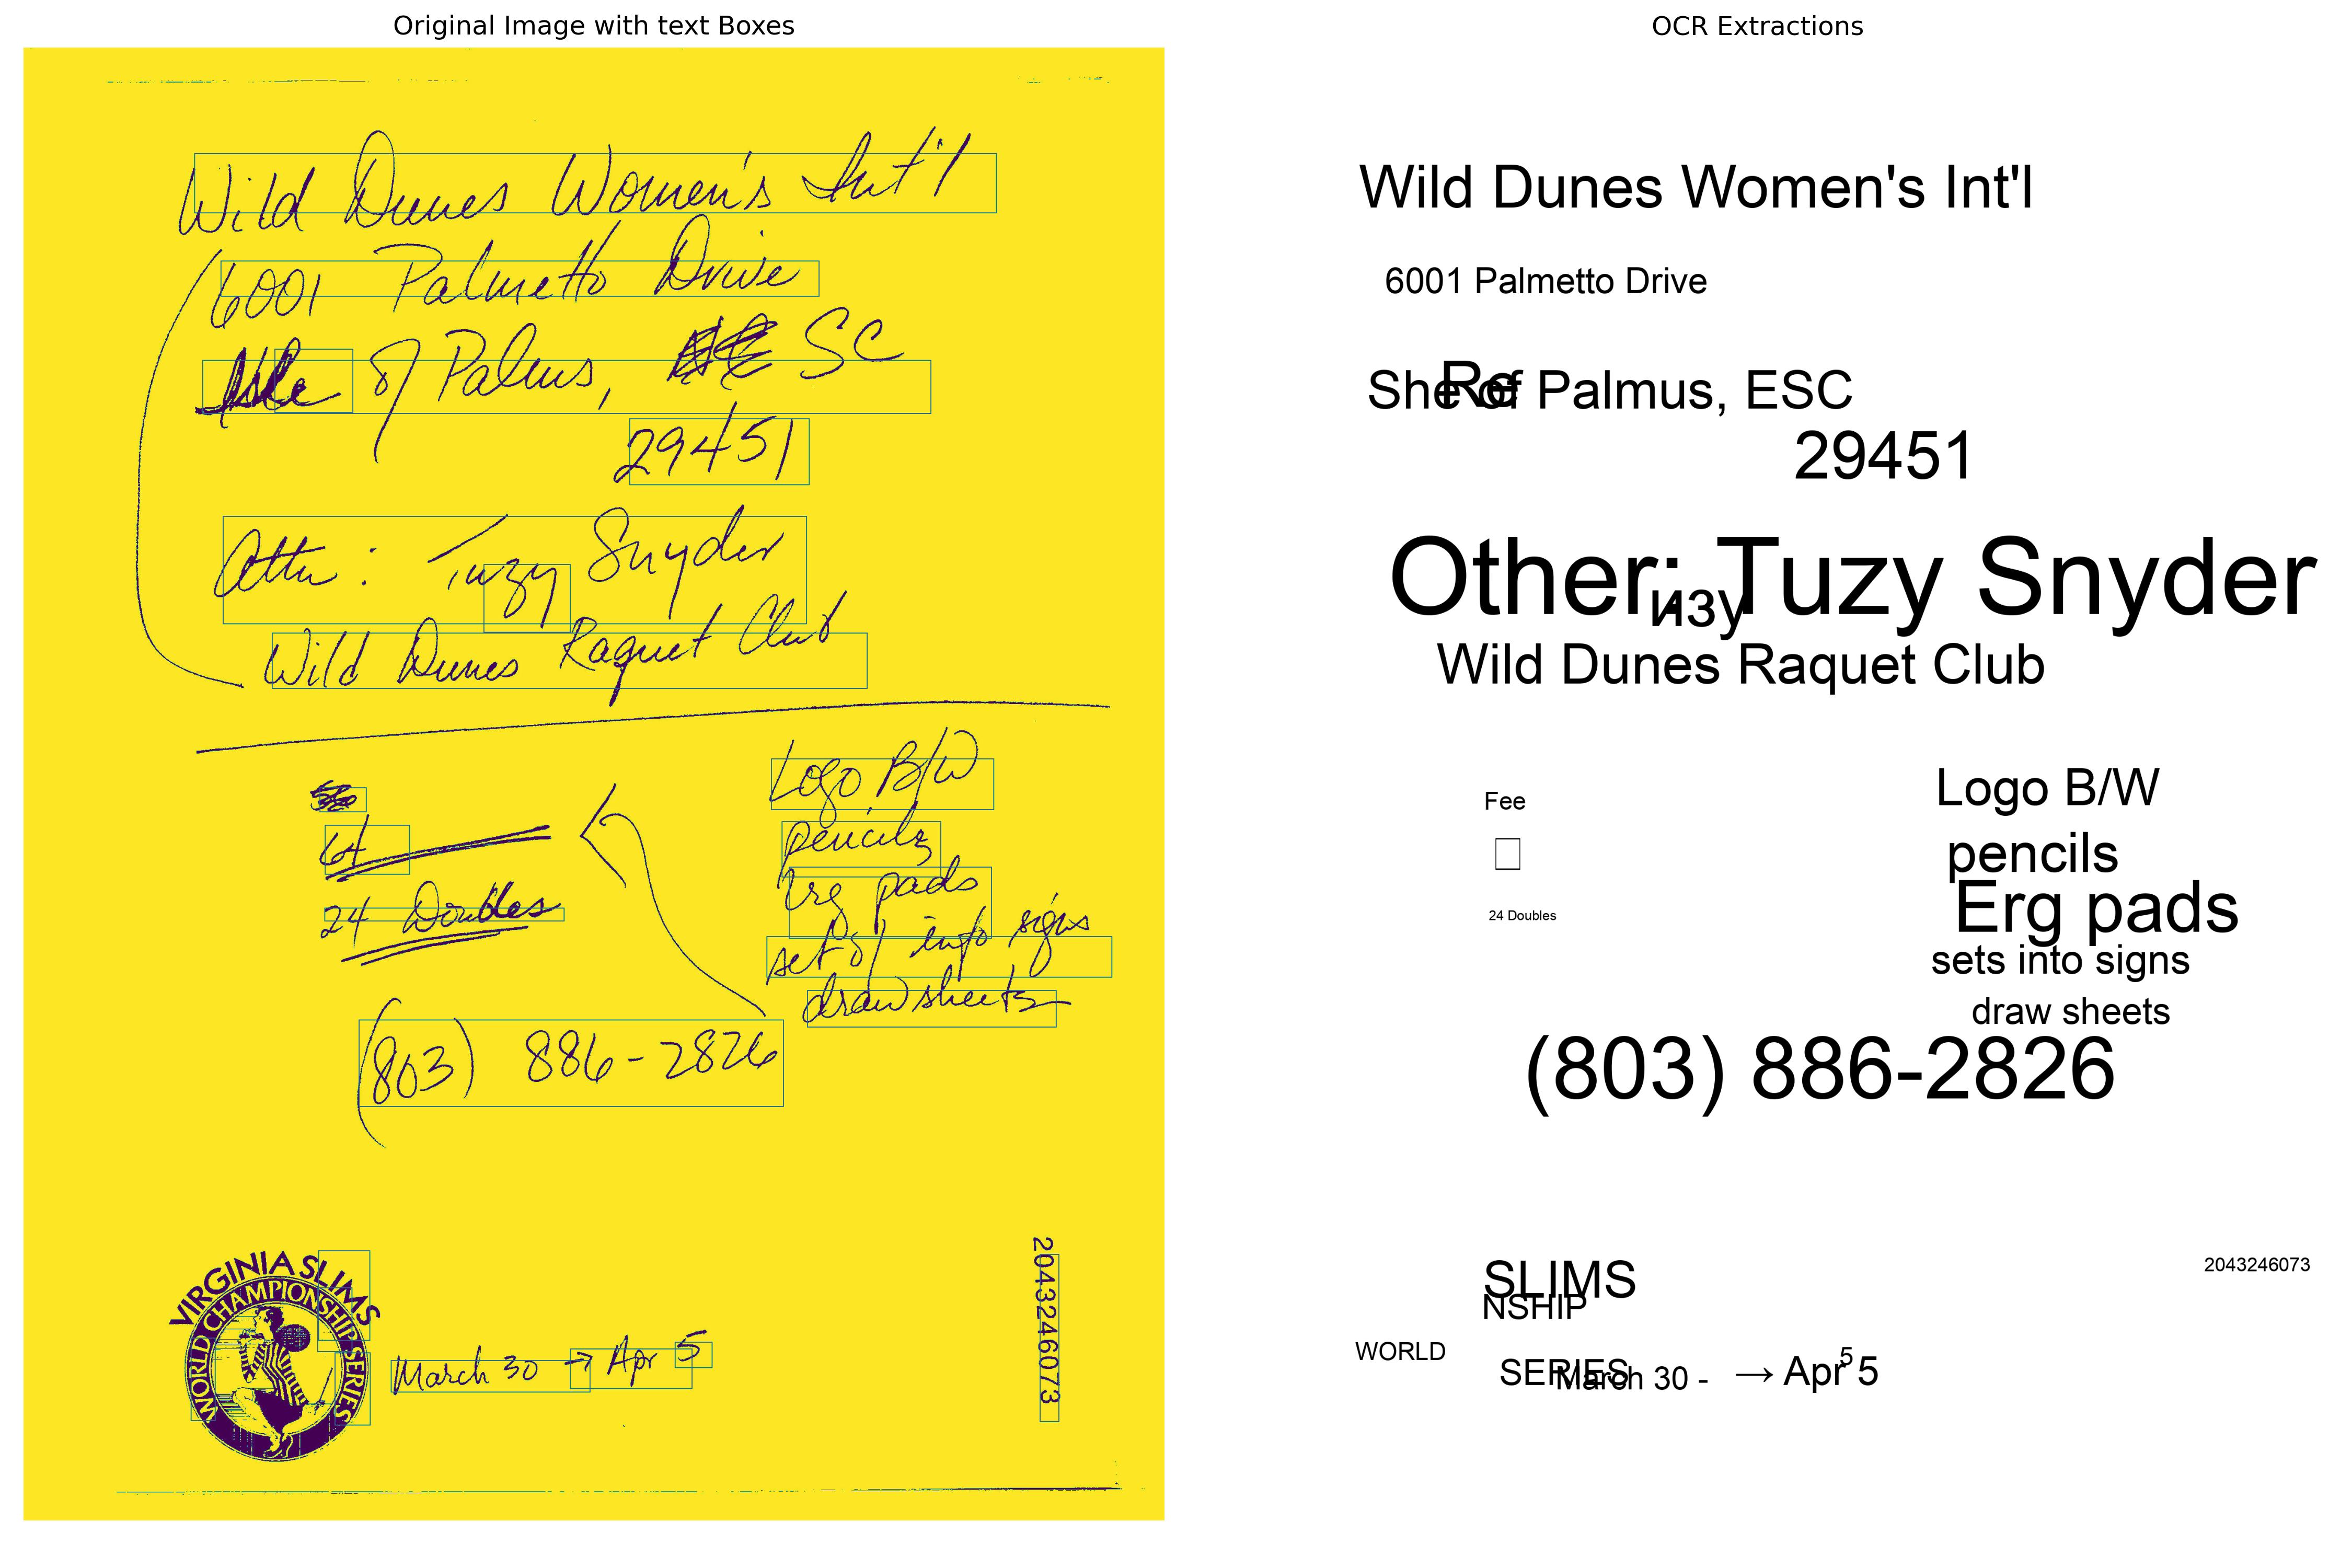 Original Image with text Boxes
Wild Dunes Women's Int'l
6001 Palmetto Drive
Isle of Palms, SC
29451
Attn: Tuzy Snyder
Wild Dunes Raquet Club
64
24 Doubles
Logo B/W
pencils
pads
set of info signs
draw sheets
(803) 886-2826
VIRGINIA SLIMS
WORLD CHAMPIONSHIP SERIES
March 30 → Apr 5
2043246073
OCR Extractions
Wild Dunes Women's Int'l
6001 Palmetto Drive
She of Palmus, ESC
Re
29451
Other: Tuzy Snyder
изу
Wild Dunes Raquet Club
Fee
24 Doubles
Logo B/W
pencils
Erg pads
sets into signs
draw sheets
(803) 886-2826
2043246073
SLIMS
NSHIP
WORLD
SERIES
March 30 -
→ Apr 5
5